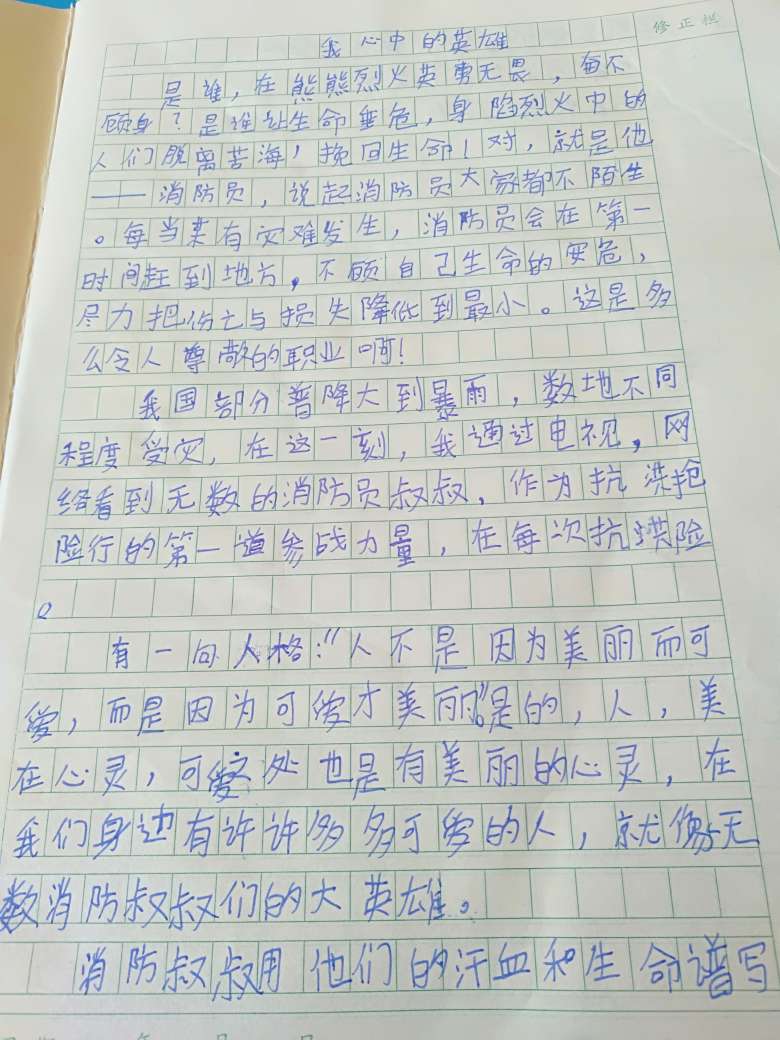 修正栏
我心中的英雄
是谁，在熊熊烈火英勇无畏，每不
顾身？是谁让生命垂危，身陷烈火中的
人们脱离苦海，挽回生命！对，就是他
——消防员，说起消防员大家都不陌生
。每当来有灾难发生，消防员会在第一
时间赶到地方，不顾自己生命的安危，
尽力把伤亡与损失降低到最小。这是多
么令人尊敬的职业啊！
我国部分普降大到暴雨，数地不同
程度受灾，在这一刻，我通过电视，网
络看到无数的消防员叔叔，作为抗洪抢
险行的第一道参战力量，在每次抗洪险
。
有一向人格：“人不是因为美丽而可
爱，而是因为可爱才美丽。”是的，人，美
在心灵，可爱之处也是有美丽的心灵，在
我们身边有许许多多可爱的人，就像无
数消防叔叔们的大英雄。
消防叔叔用他们的汗血和生命谱写